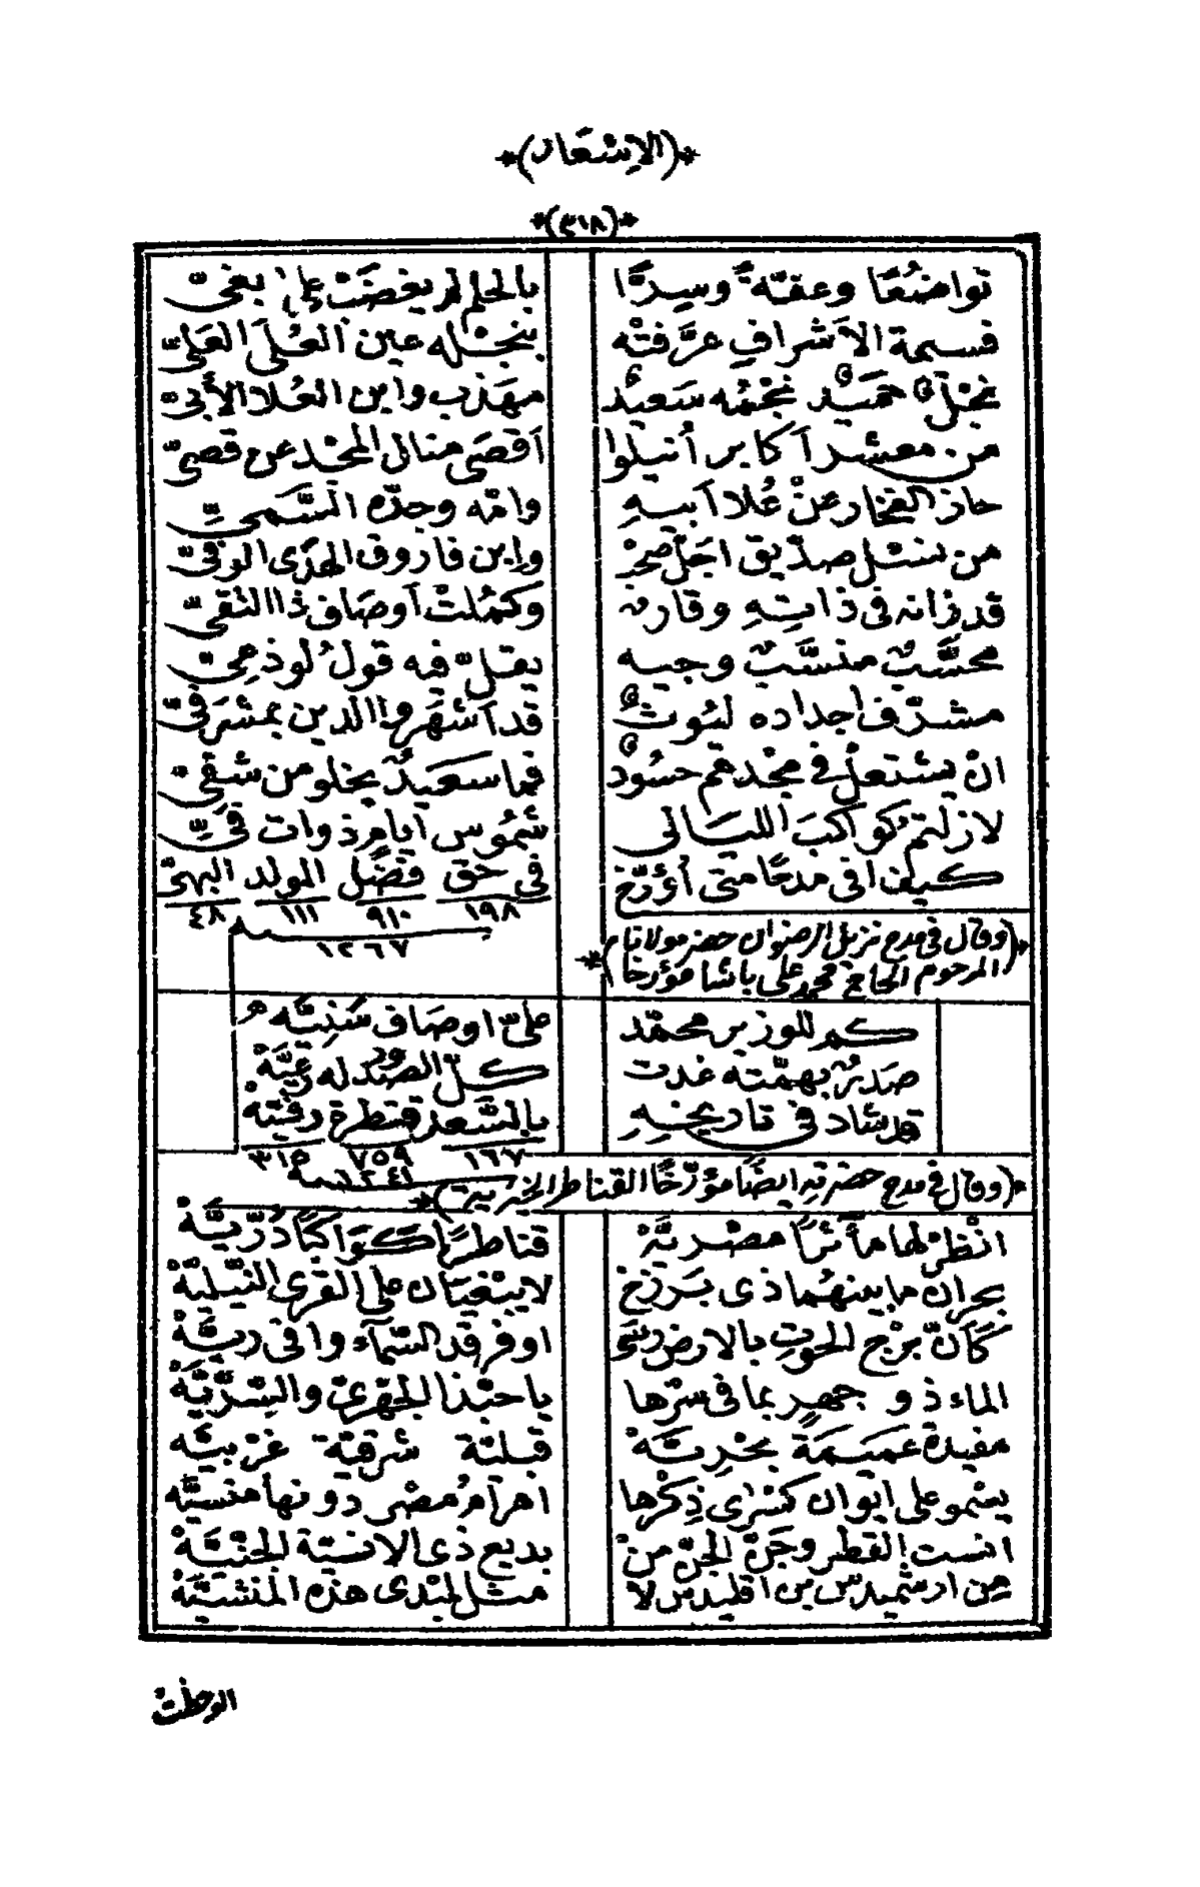 *(الاشعار)*
*(٣١٨)*
تواضعًا وعفّةً وسيرًّا بالحلم لم يغضب على بغيّ
قسيمة الأشراف عرّفته بنجله عين العُلَى العَليّ
نجلٌ حميدٌ نجمه سَعيدٌ مهذب وابن العُلا الأبيّ
من معشر أكابر أنيلوا أقصَى منال المجد عن قصيّ
حاز الفخار عن عُلا أبيهِ وامّه وجدّه السَّميِّ
من نسل صدّيق اجلّ صحرٍ وابن فاروق الهدَى الوفيّ
قد زانه في ذاتهِ وقار وكمُلت أوصاف ذا النقيّ
محسَّبٌ منسَّبٌ وجيه يقلّ فيه قولُ لوذعيّ
مشرّف اجداده ليُوثٌ قد أشهروا الدين بمشرَفيّ
ان يشتعل في مجدهم حسُودٌ فما سعيدٌ يخلو من شقيّ
لازلتم كواكبَ الليَالى شمُوس ايام ذوات فيِّ
كيف افى مدحًا متى أؤرّخ في حق فضل المولد البهىّ
١٩٨ ٩١٠ ١١١ ٤٨
سنة ١٢٦٧
*(وقال في مدح نزيل الرضوان حضر مولانا
المرحوم الحاج محمد على باشا مؤرخا)*
كم للوزير محمّد علىّ اوصاف سَنِيّه
صدرٌ بهمّته غدت كلّ الصدور له رعيّةْ
قد شاد في تاريخهِ بالسّعد قنطرة رقيّةْ
١٦٧ ٧٥٩ ٣١٥
سنة ١٢٤١
*(وقال في مدح حضرته ايضًا مؤرّخًا القناطر الخيرية)*
انظر لها مآثرًا مصْريَّةْ قناطرًا كَوَاكبًا دُرّيَّةْ
بحران ما بينهُما ذى بَرزخ لا يبْغيَان على القرى النّيليّةْ
كأنّ برْج الحوتِ بالارض رسَى او فرقد السّمآء وافى ريّهْ
الماء ذو جهرٍ بما فى سرّها يا حبّذا الجهْريّ والسّرّيَّةْ
مفيدة عمَيمَة بحْريّةْ قبليّة شرقيّة غرْبيّه
يسْمو على ايوان كسْرٰى ذِكْرها اهرَامُ مصْر دونها منسيَّه
انست القطر وجَنّ الجنّ منْ بديع ذى الانسيّة الجنّيّةْ
من ارشميدس من اقليدس لا مثل لمبْدى هذه المنشيّةْ
الوحظتْ